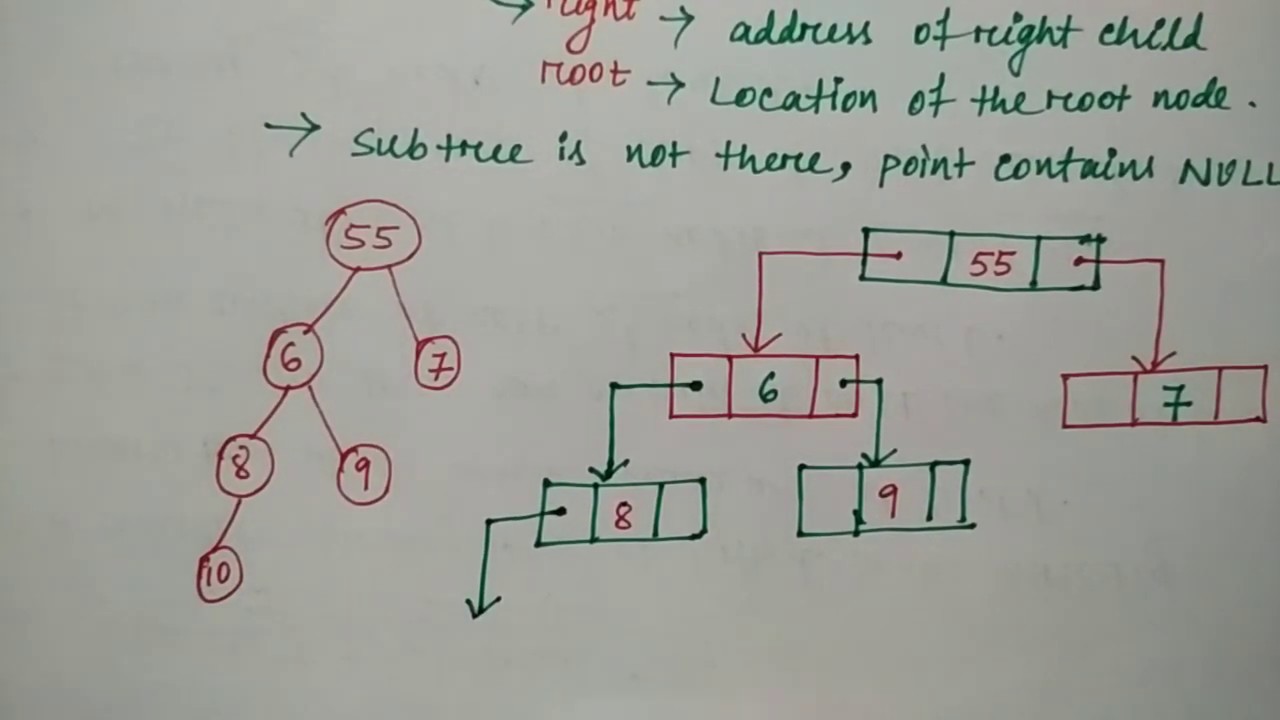 → right → address of right child
root → Location of the root node.
→ Subtree is not there, point contains NULL
55
55
6
7
6
7
8
9
8
9
10